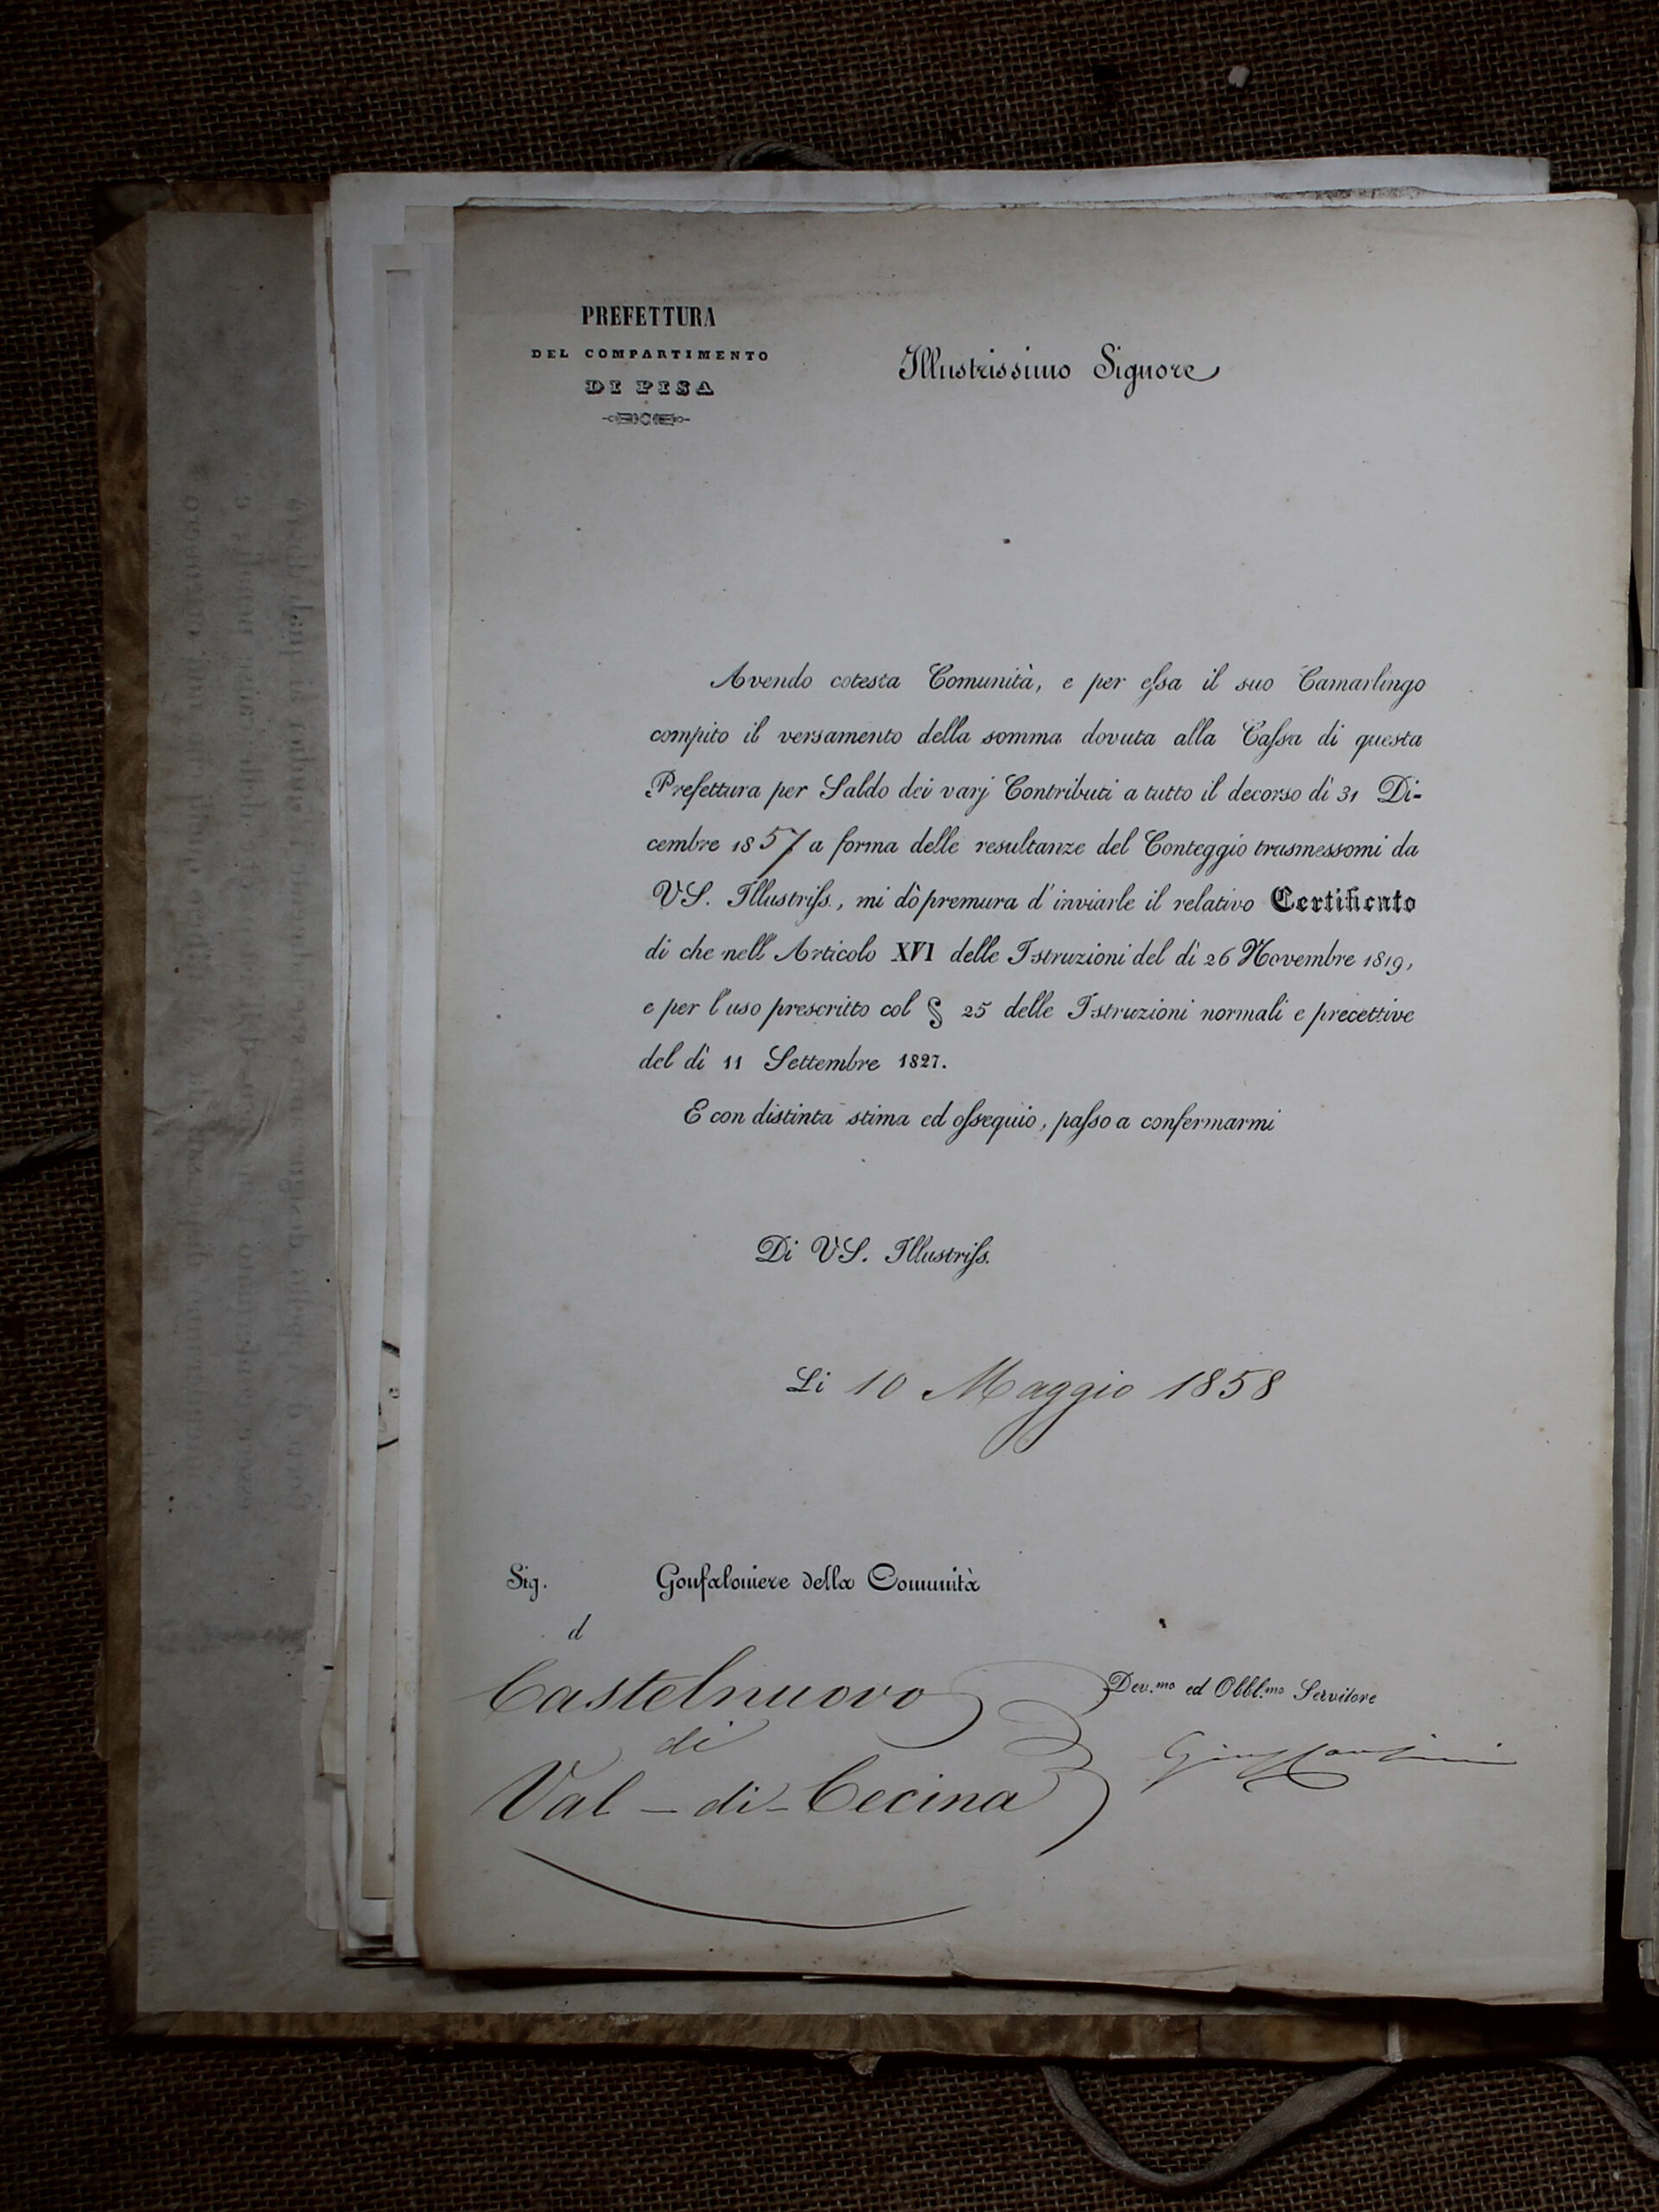 PREFETTURA
DEL COMPARTIMENTO
DI PISA
Illustrissimo Signore
Avendo cotesta Comunità, e per eſsa il suo Camarlingo
compito il versamento della somma dovuta alla Caſsa di questa
Prefettura per Saldo dei varj Contributi a tutto il decorso dì 31 Di-
cembre 1857 a forma delle resultanze del Conteggio trasmessomi da
VS. Illustriſs., mi dò premura d'inviarle il relativo Certificato
di che nell'Articolo XVI delle Istruzioni del dì 26 Novembre 1819,
e per l'uso prescritto col § 25 delle Istruzioni normali e precettive
del dì 11 Settembre 1827.
E con distinta stima ed oſsequio, paſso a confermarmi
Di VS. Illustriſs.
Li 10 Maggio 1858
Sig. Gonfaloniere della Comunità
d
Castelnuovo
di
Val-di-Cecina
Dev.mo ed Obbl.mo Servitore